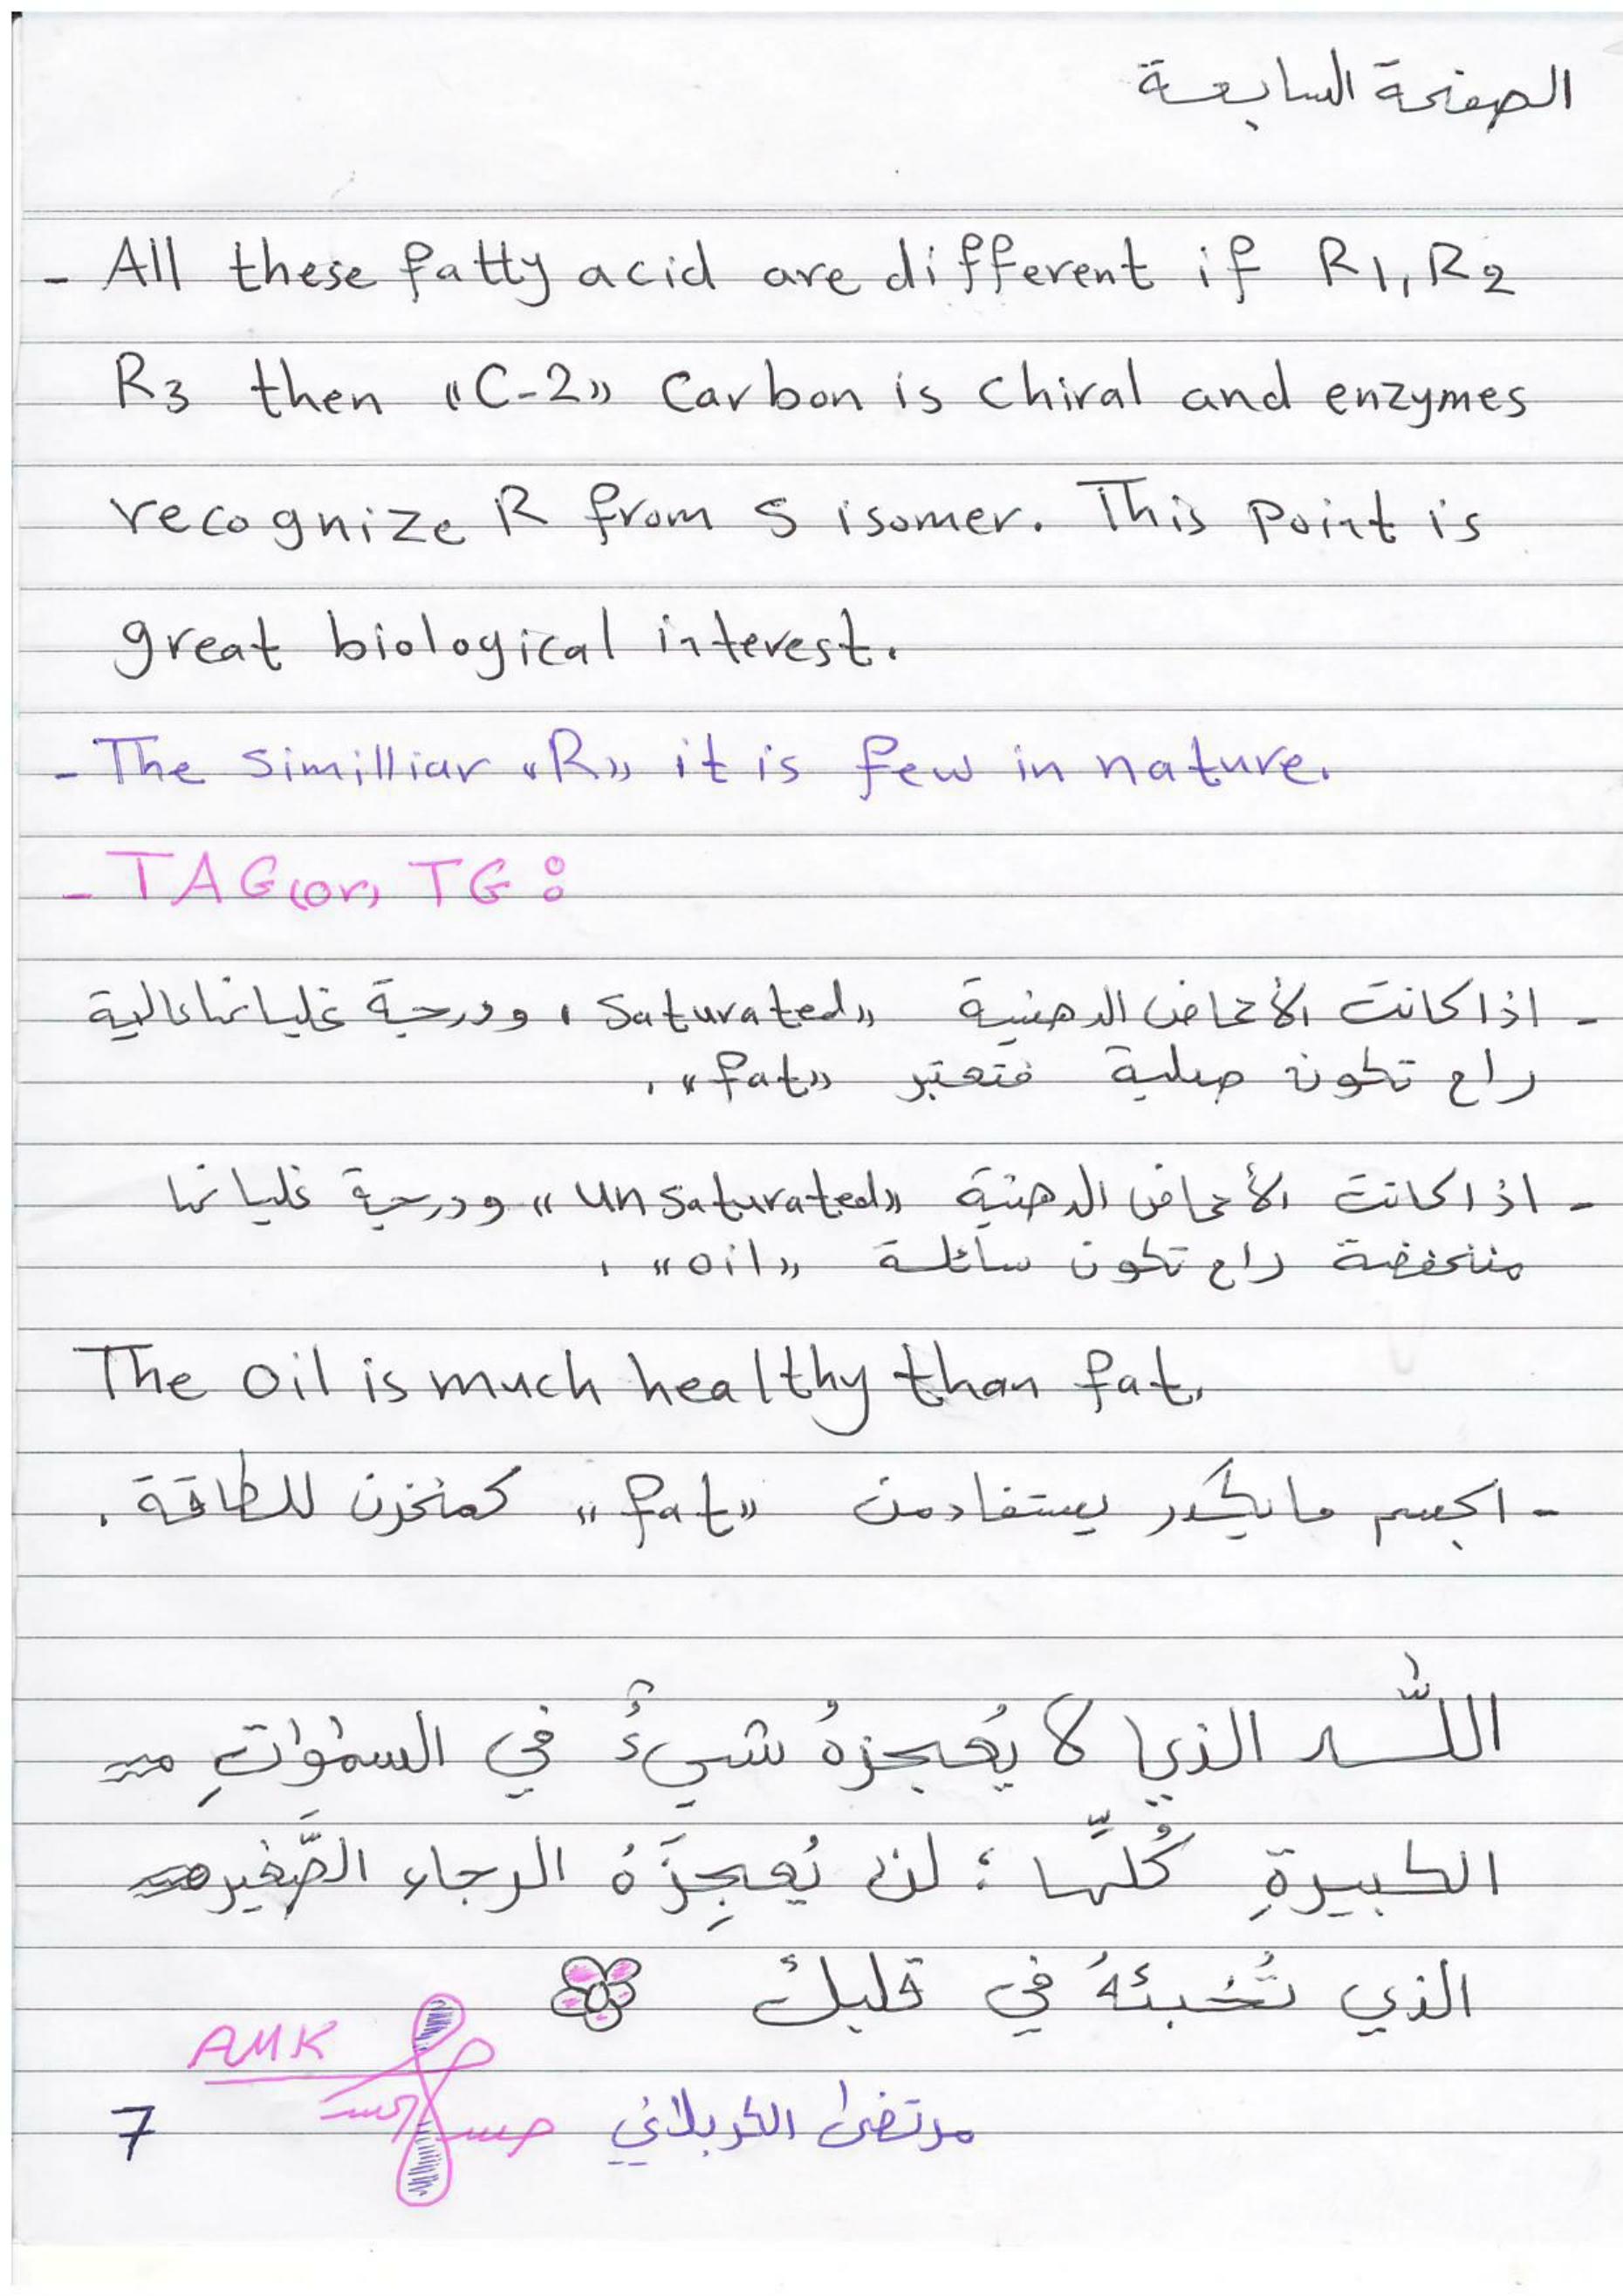 الصفحة السابعة
- All these fatty acid are different if R1, R2
R3 then «C-2» Carbon is chiral and enzymes
recognize R from S isomer. This point is
great biological interest.
- The similliar «R» it is few in nature.
- TAG (or) TG :
- اذا كانت الأحماض الدهنية «Saturated» ودرجة غليانها عالية
راح تكون صلبة فتعتبر «fat».
- اذا كانت الأحماض الدهنية «Unsaturated» ودرجة غليانها
منخفضة راح تكون سائلة «oil».
The oil is much healthy than fat.
- الجسم مايكدر يستفاد من «fat» كمخزن للطاقة.
اللّٰه الذي لا يُعجزهُ شيءٌ في السمٰوٰاتِ
الكبيرةِ كُلِّها ؛ لن يُعجِزَهُ الرجاء الصَّغير
الذي تُخبئهُ في قلبك
AMK
مرتضى الكربلائي
7